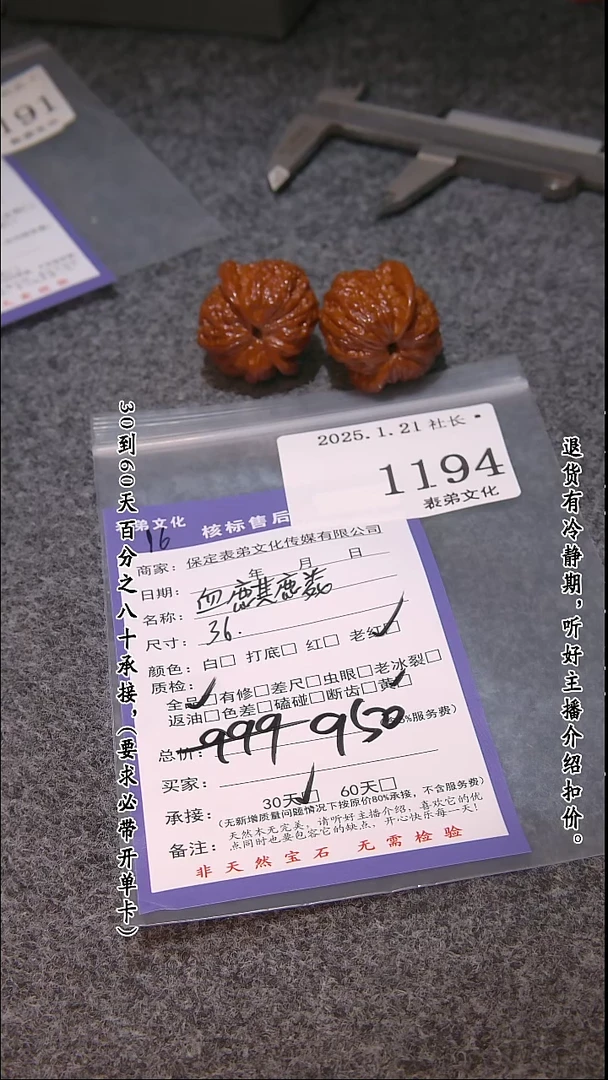 191
30到60天百分之八十承接,(要求必带开单卡)
退货有冷静期,听好主播介绍扣价。
2025.1.21 社长
1194
表弟文化
弟文化 核标售后
16
商家: 保定表弟文化传媒有限公司
日期: 年 月 日
名称: 血麒麟
尺寸: 36.
颜色: 白□ 打底□ 红□ 老红□
质检:
全品□有修□差尺□虫眼□老冰裂□
返油□色差□磕碰□断齿□黄□
总价: 999 950 %服务费)
买家:
承接: 30天□ 60天□
(无新增质量问题情况下按原价80%承接,不含服务费)
备注: 天然木无完美,请听好主播介绍,喜欢它的优
点同时也要包容它的缺点,开心快乐每一天!
非天然宝石 无需检验